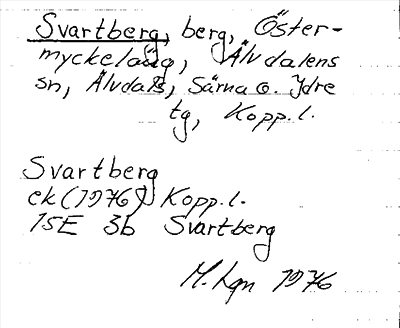 Svartberg, berg, Öster-
myckeläng, Älvdalens
sn, Älvdals, Särna o. Idre
tg, Kopp.l.
Svartberg
ek (1976) Kopp.l.
15E 3b Svartberg
M. Lgn 1976